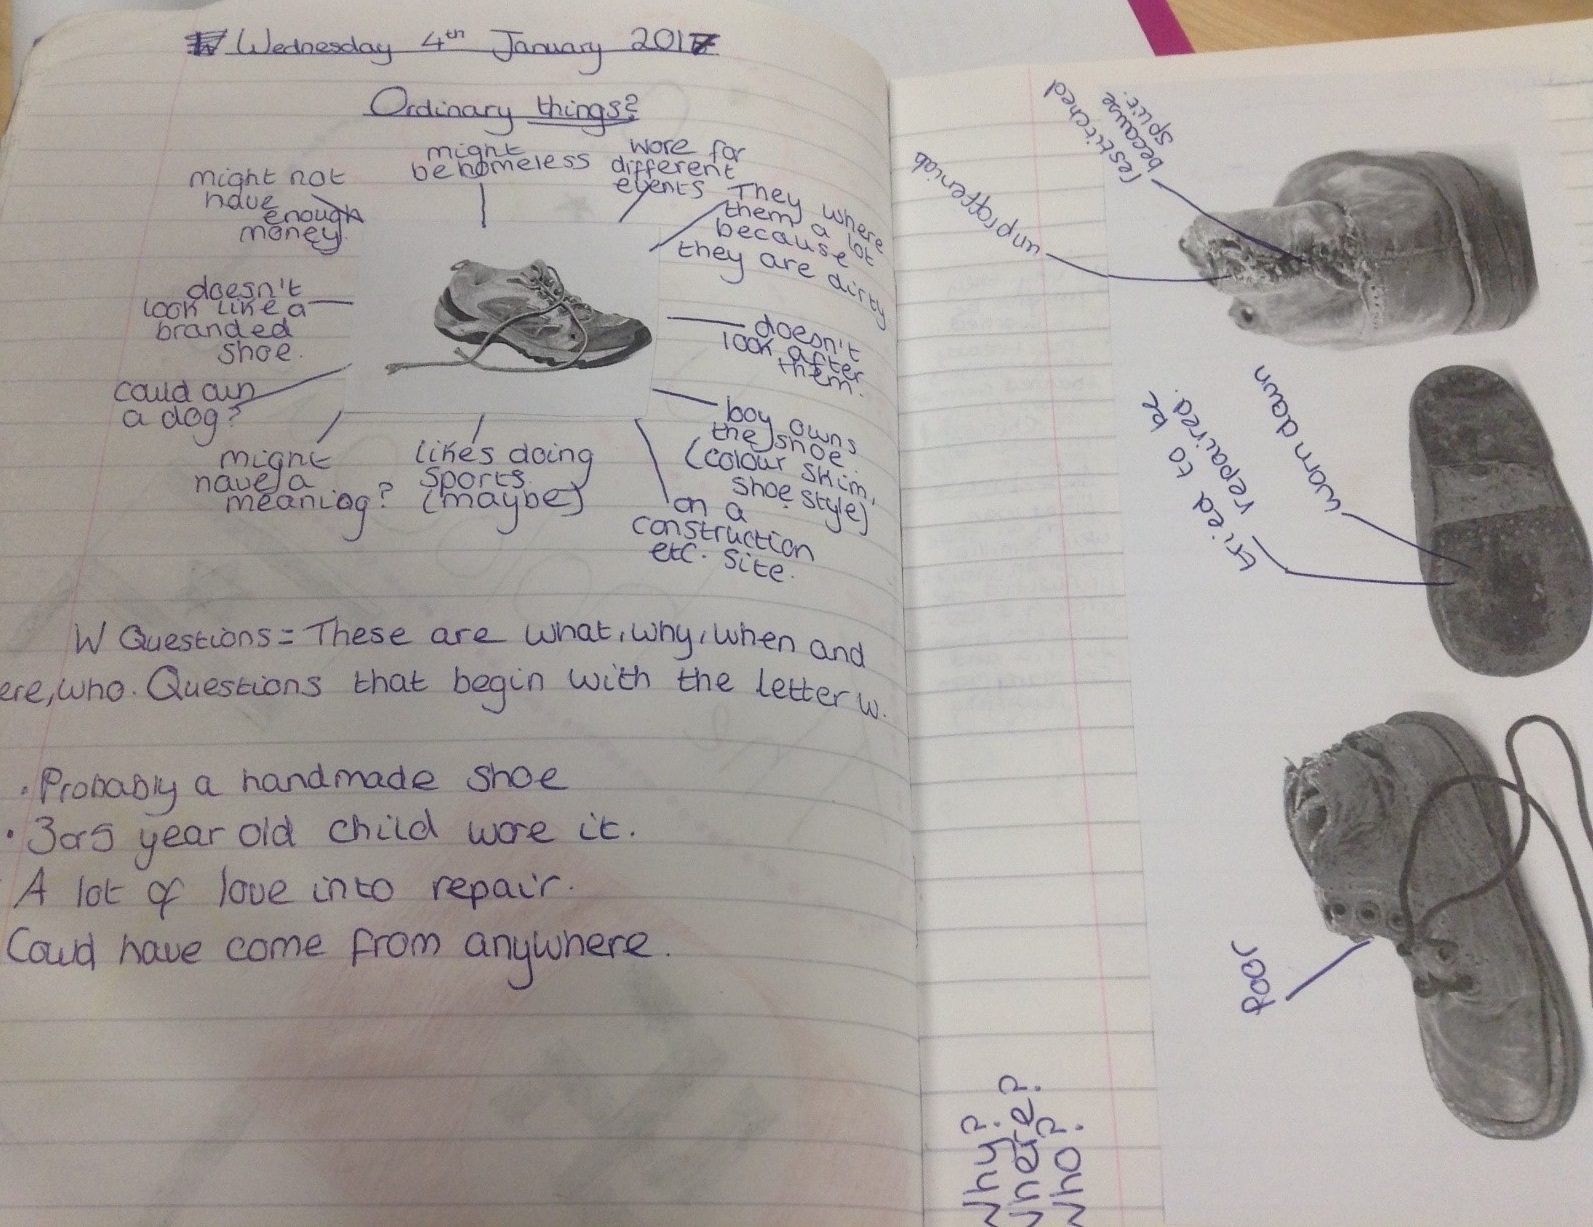 Wednesday 4th January 2017
Ordinary things?
might not
have
enough
money.
might
be homeless
wore for
different
events
They where
them a lot
because
they are dirty
doesn't
look like a
branded
shoe.
doesn't
look after
them.
could own
a dog?
boy owns
the shoe.
(colour skim,
shoe style)
might
have a
meaning?
likes doing
sports.
(maybe)
on a
construction
etc. site.
W Questions = These are what, why, when and
ere, who. Questions that begin with the letter w.
• Probably a handmade shoe
• 3 or 5 year old child wore it.
A lot of love into repair.
Could have come from anywhere.
restitched
because
split.
unproffeniab
worn down
tried to be
repaired.
Poor
Why?
Where?
Who?